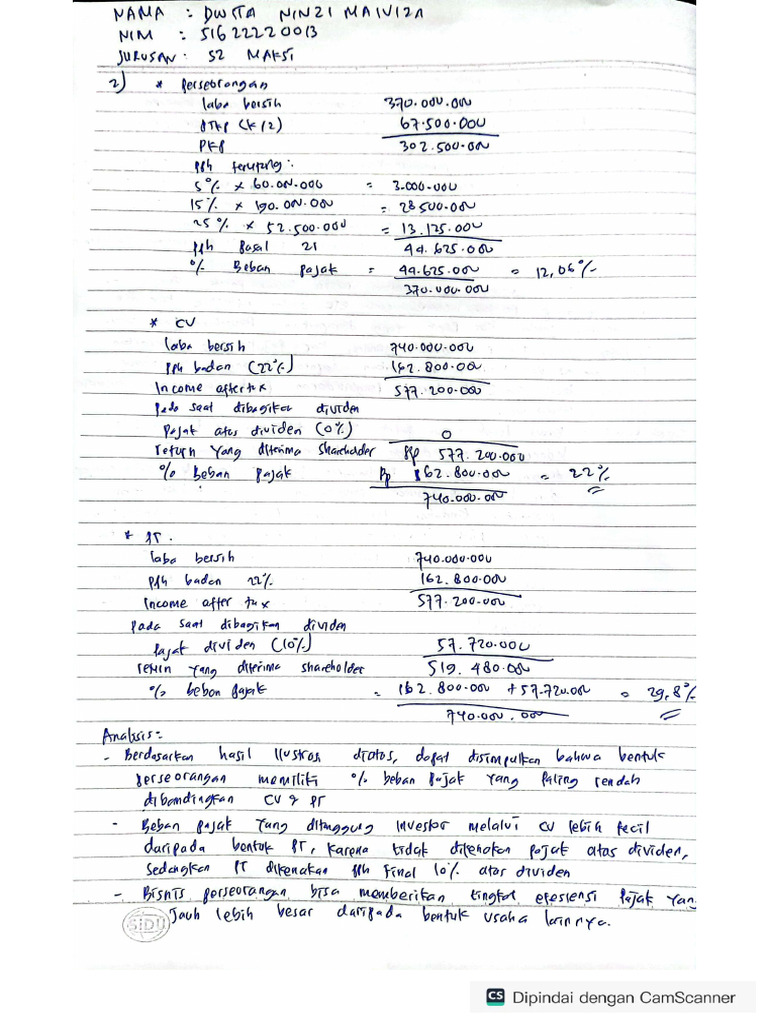 NAMA : DWITA NINZI MAIVIZA
NIM : 51622220013
JURUSAN : S2 MAKSI
2) * perseorangan
laba bersih 370.000.000
PTKP (K/2) 67.500.000
PKP 302.500.000
pph terutang :
5% x 60.000.000 = 3.000.000
15% x 190.000.000 = 28.500.000
25% x 52.500.000 = 13.125.000
pph pasal 21 44.625.000
% Beban pajak = 44.625.000 = 12,06%
370.000.000
* CV
laba bersih 740.000.000
pph badan (22%) 162.800.000
Income after tax 577.200.000
pada saat dibagikan dividen
pajak atas dividen (0%) 0
return yang diterima shareholder Rp 577.200.000
% beban pajak Rp 162.800.000 = 22%
740.000.000
* PT.
laba bersih 740.000.000
pph badan 22% 162.800.000
Income after tax 577.200.000
pada saat dibagikan dividen
pajak dividen (10%) 57.720.000
return yang diterima shareholder 519.480.000
% beban pajak = 162.800.000 + 57.720.000 = 29,8%
740.000.000
Analisis =
- Berdasarkan hasil Ilustrasi diatas, dapat disimpulkan bahwa bentuk
perseorangan memiliki % beban pajak yang paling rendah
dibandingkan CV & PT
- Beban pajak yang ditanggung investor melalui CV lebih kecil
daripada bentuk PT, karena tidak dikenakan pajak atas dividen,
sedangkan PT dikenakan pph Final 10% atas dividen
- Bisnis perseorangan bisa memberikan tingkat efesiensi pajak yang
jauh lebih besar daripada bentuk usaha lainnya.
SIDU
CS Dipindai dengan CamScanner